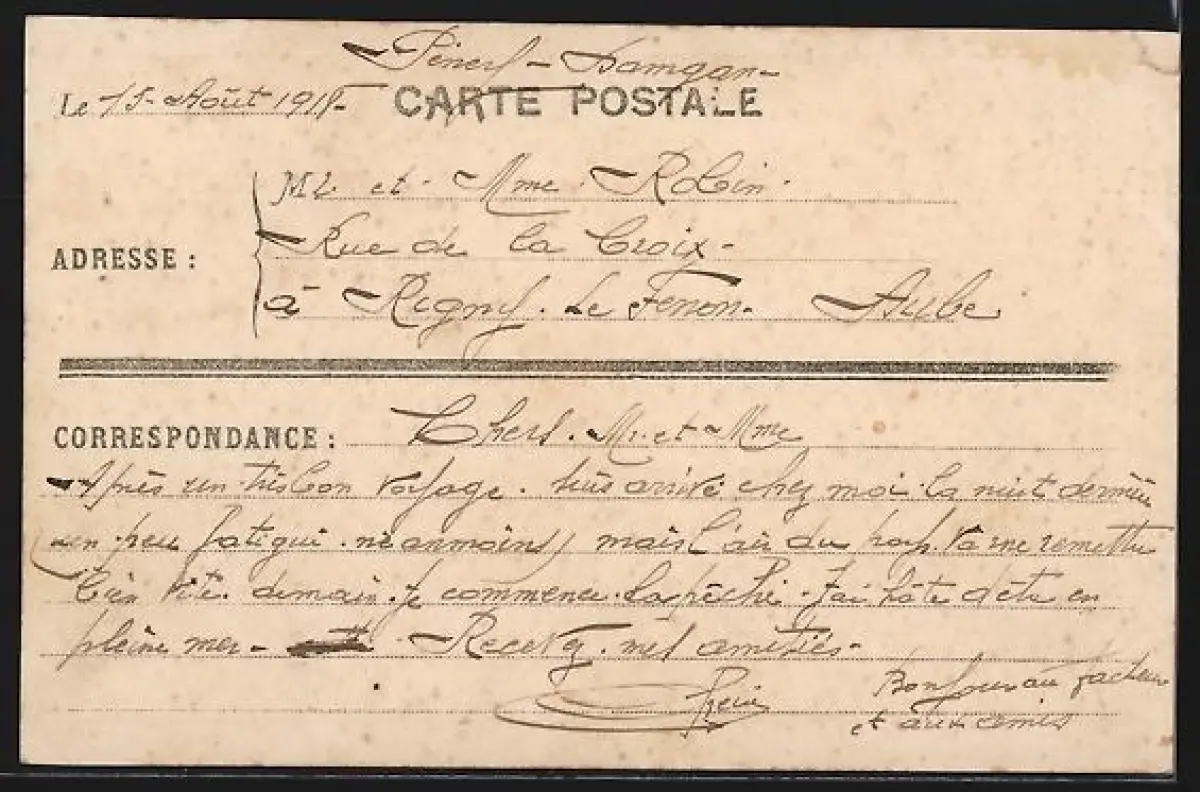 Pénerf - Damgan -
Le 15 - Août 191
CARTE POSTALE
Mr et Mme Robin
Rue de la Croix -
ADRESSE :
à Rigny - Le Ferron - Aube
CORRESPONDANCE : Chers Mr et Mme
Après un très bon voyage . suis arrivé chez moi la nuit dernière
un peu fatigué néanmoins, mais l'air du pays va me remettre
bien vite . demain je commence la pêche . J'ai hâte d'être en
pleine mer - Recevez mes amitiés -
Bonjour au facteur
et aux amis